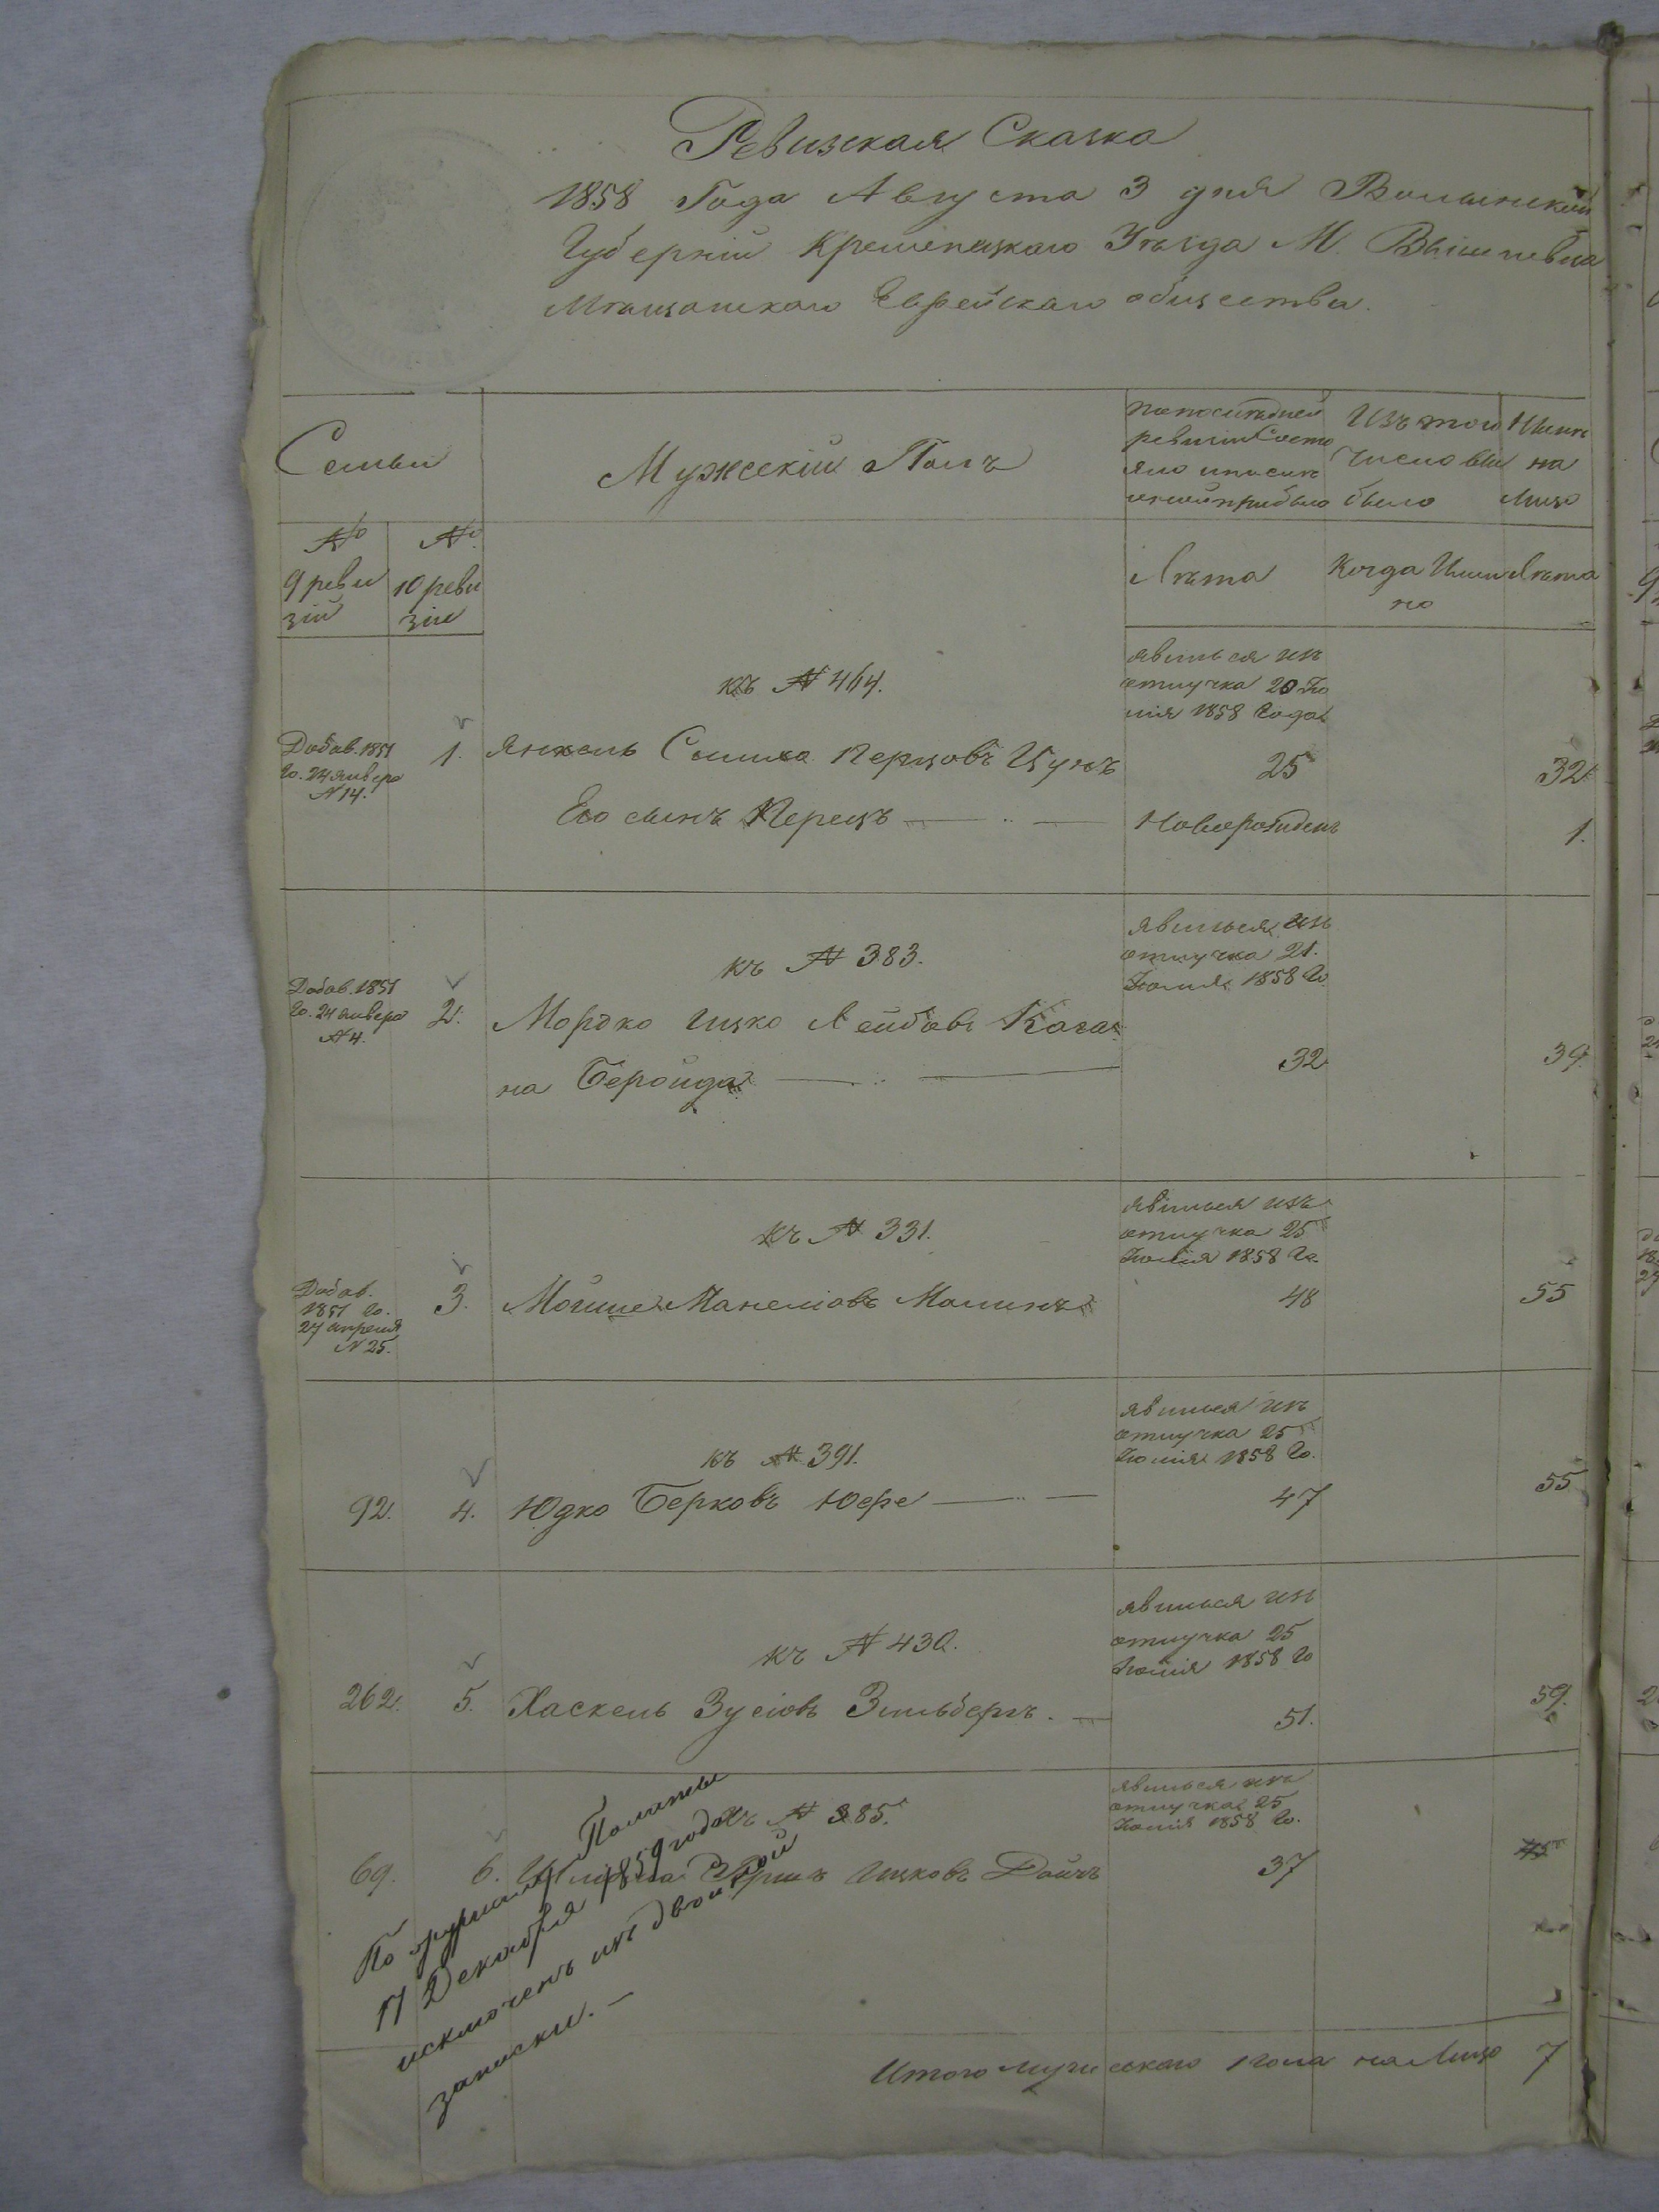 Ревизская Сказка
1858 Года Августа 3 дня Волынской
Губерніи Кременецкаго Уѣзда М. Вышневца
Мѣщанскаго Еврейскаго общества.
Семьи
Мужескій Полъ
По последней
ревизіи Состо
яло и после
оной прибыло
Изъ того
числа вы
было
Ныне
на
Лицо
№
9 реви
зіи
№
10 реви
зіи
Лѣта
Когда Имен
но
Лѣта
къ № 464.
явился изъ
отлучка 20 Ію
лія 1858 Года
Добав. 1851
Го. 24 Января
№ 14.
1. Янкель Симха Перцовъ Цунъ 25 32
Его сынъ Перецъ Новорожденъ 1.
къ № 383.
явился изъ
отлучка 21.
Іюлія 1858 Го
Добав. 1851
Го. 24 Января
№ 4.
2. Мордко Ицко Лейбовъ Кага
на Беройда 32 39
къ № 331.
явился изъ
отлучка 25
Іюлія 1858 Го.
Добав.
1851 Го.
27 апреля
№ 25.
3. Мойше 48 55
къ № 391.
явился изъ
отлучка 25
Іюлія 1858 Го.
92. 4. Юдко Берковъ Юфе 47 55
къ № 430.
явился изъ
отлучка 25
Іюлія 1858 Го
262. 5. Хаскель Зусіовъ Зильберъ. 51. 59.
къ № 385.
явился изъ
отлучка 25
Іюлія 1858 Го.
69. 6. Гершъ Ицковъ Дойчъ 37 45
По Палаты
17 Декабря 1859 года
исключенъ изъ двойной
записки.
Итого мужескаго пола на Лицо 7